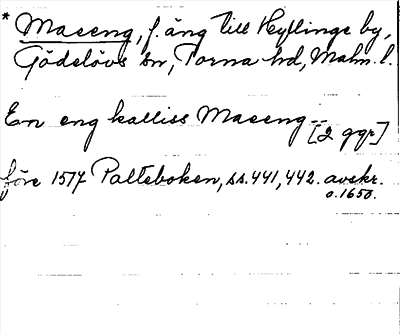 * Maseng, f. äng till Hyllinge by,
Gödelövs sn, Torna hd, Malm. l.
En eng kalliss Maseng -- [2 ggr]
före 1517 Palteboken, ss. 441, 442. avskr.
o. 1650.